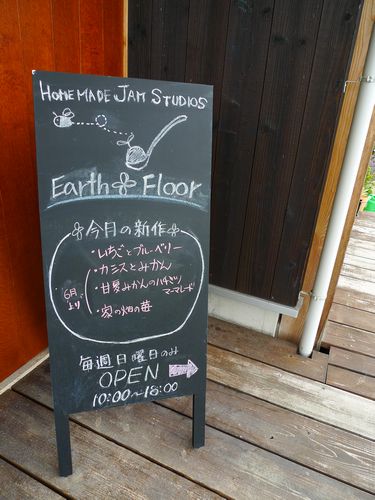 HOMEMADE JAM STUDIOS
Earth Floor
今月の新作
・いちごとブルーベリー
・カシスとみかん
6月より
・甘夏みかんのハチミツ
マーマレード
・家の畑の苺
毎週日曜日のみ
OPEN
10:00~18:00